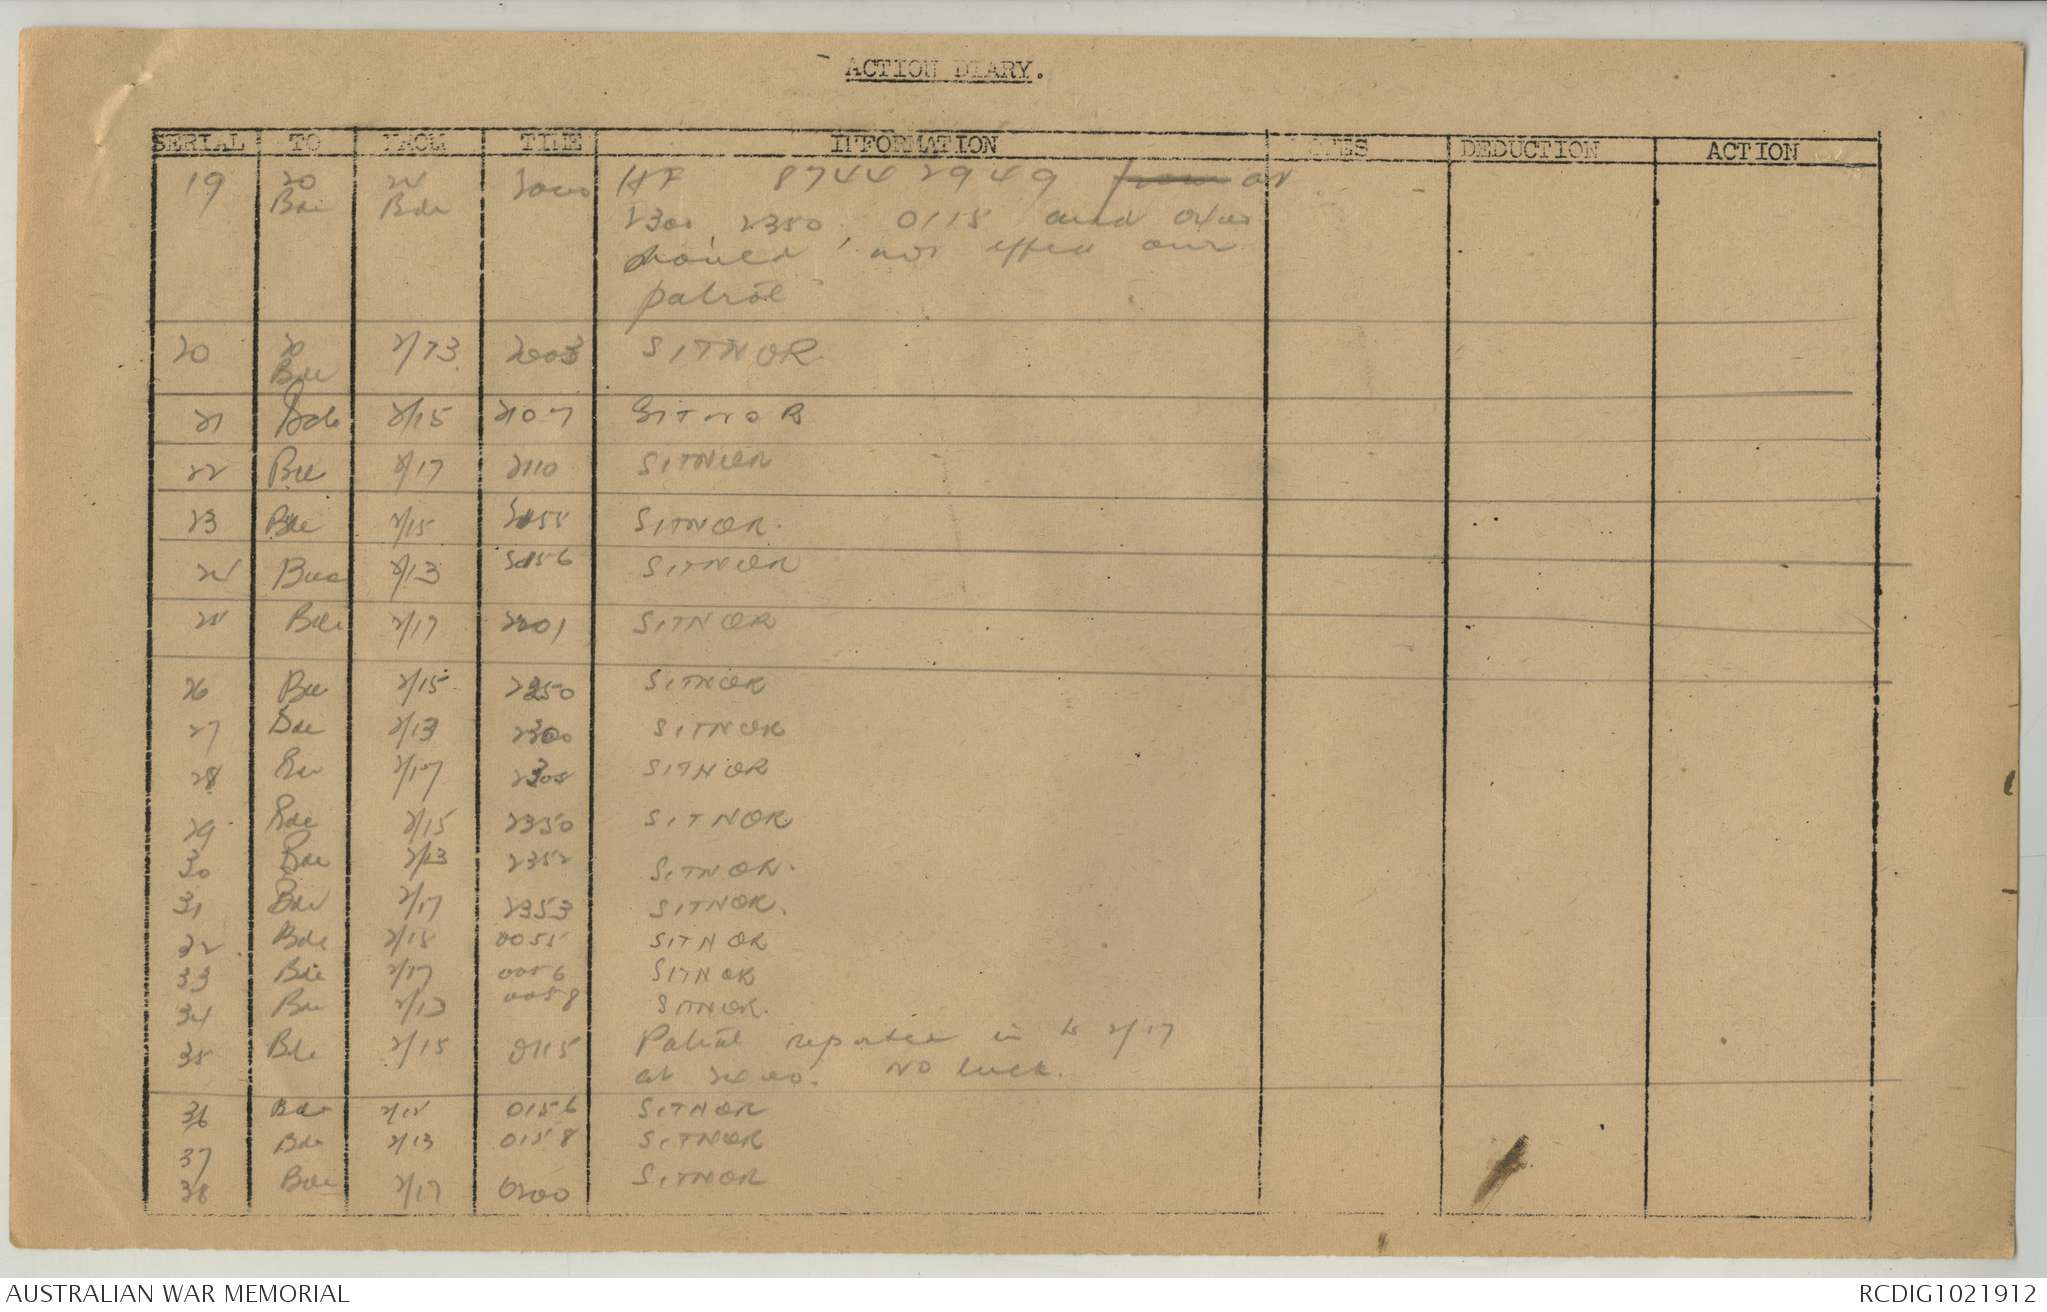 ACTION DIARY.
SERIAL TO FROM TIME INFORMATION DEDUCTION ACTION
19 20 Bde 24 Bde 2000 HF 87442949 at
2300, 2350, 0115 and
should not effect our
patrol
20 20 Bde 2/13 2003 SITNOR.
21 Bde 2/15 2107 SITNOR
22 Bde 2/17 2110 SITNOR
23 Bde 2/15 2155 SITNOR.
24 Bde 2/13 2156 SITNOR
25 Bde 2/17 2201 SITNOR
26 Bde 2/15 2250 SITNOR
27 Bde 2/13 2300 SITNOR
28 Bde 2/17 2305 SITNOR
29 Bde 2/15 2350 SITNOR
30 Bde 2/13 2352 SITNOR.
31 Bde 2/17 2353 SITNOR.
32 Bde 2/15 0055 SITNOR
33 Bde 2/17 0056 SITNOR
34 Bde 2/13 0058 SITNOR.
35 Bde 2/15 0115 Patrol reported in to 2/17
at 2400. NO luck.
36 Bde 2/15 0156 SITNOR
37 Bde 2/13 0158 SITNOR
38 Bde 2/17 0200 SITNOR
AUSTRALIAN WAR MEMORIAL
RCDIG1021912